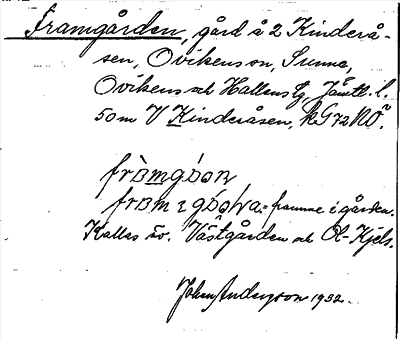 Framgården, gård å 2 Kinderå-
sen, Ovikens sn, Sunne,
Ovikens och Hallens tg, Jämtl. l.
50 m V Kinderåsen, kG72NÖ.
fròmgòɑn
from i gòɑna: framme i gården.
Kallas äv. Västgården och Ol-Kjels.
Johan Anderson 1932.